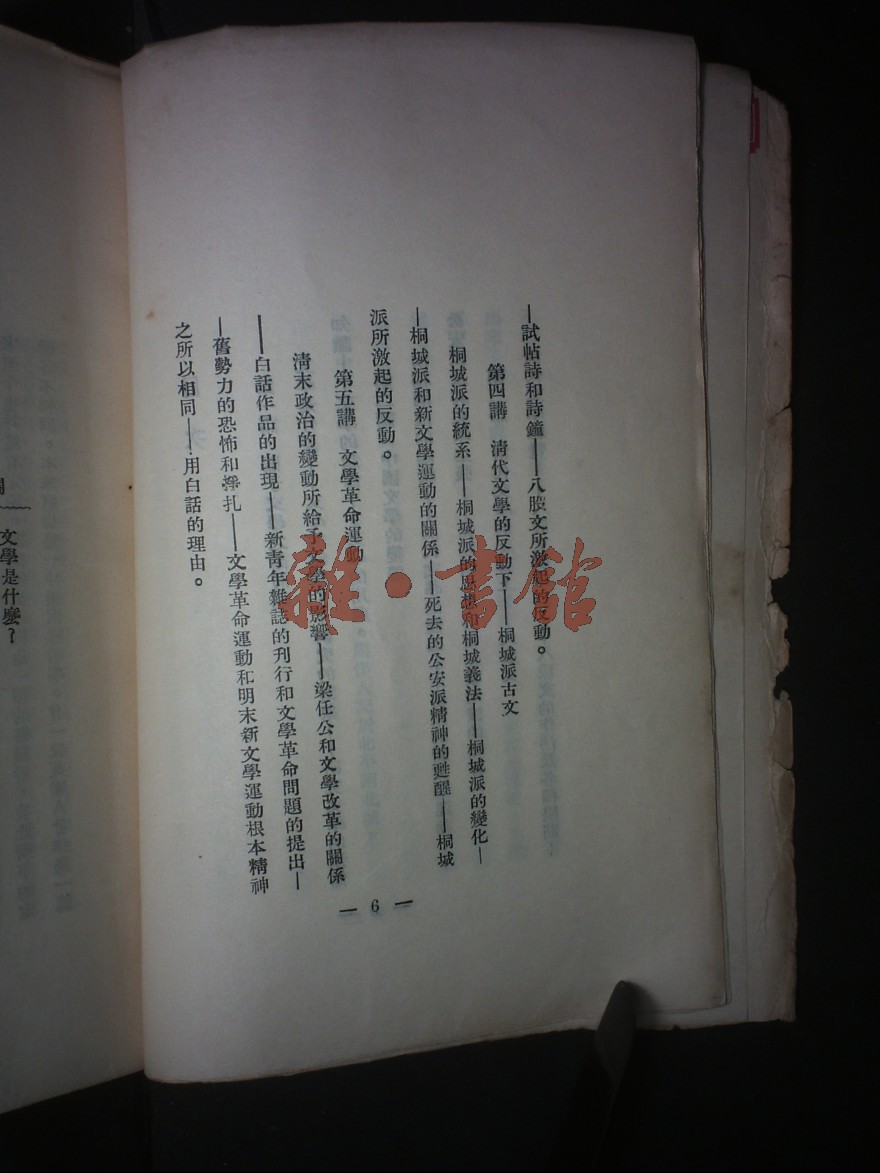 —試帖詩和詩鐘——八股文所激起的反動。
第四講　清代文學的反動下——桐城派古文
桐城派的統系——桐城派的思想和桐城義法——桐城派的變化—
—桐城派和新文學運動的關係——死去的公安派精神的甦醒——桐城
派所激起的反動。
第五講　文學革命運動
清末政治的變動所給予文學的影響——梁任公和文學改革的關係
——白話作品的出現——新青年雜誌的刊行和文學革命問題的提出—
—舊勢力的恐怖和掙扎——文學革命運動和明末新文學運動根本精神
之所以相同——用白話的理由。
— 6 —
文學是什麼？
雜·書館